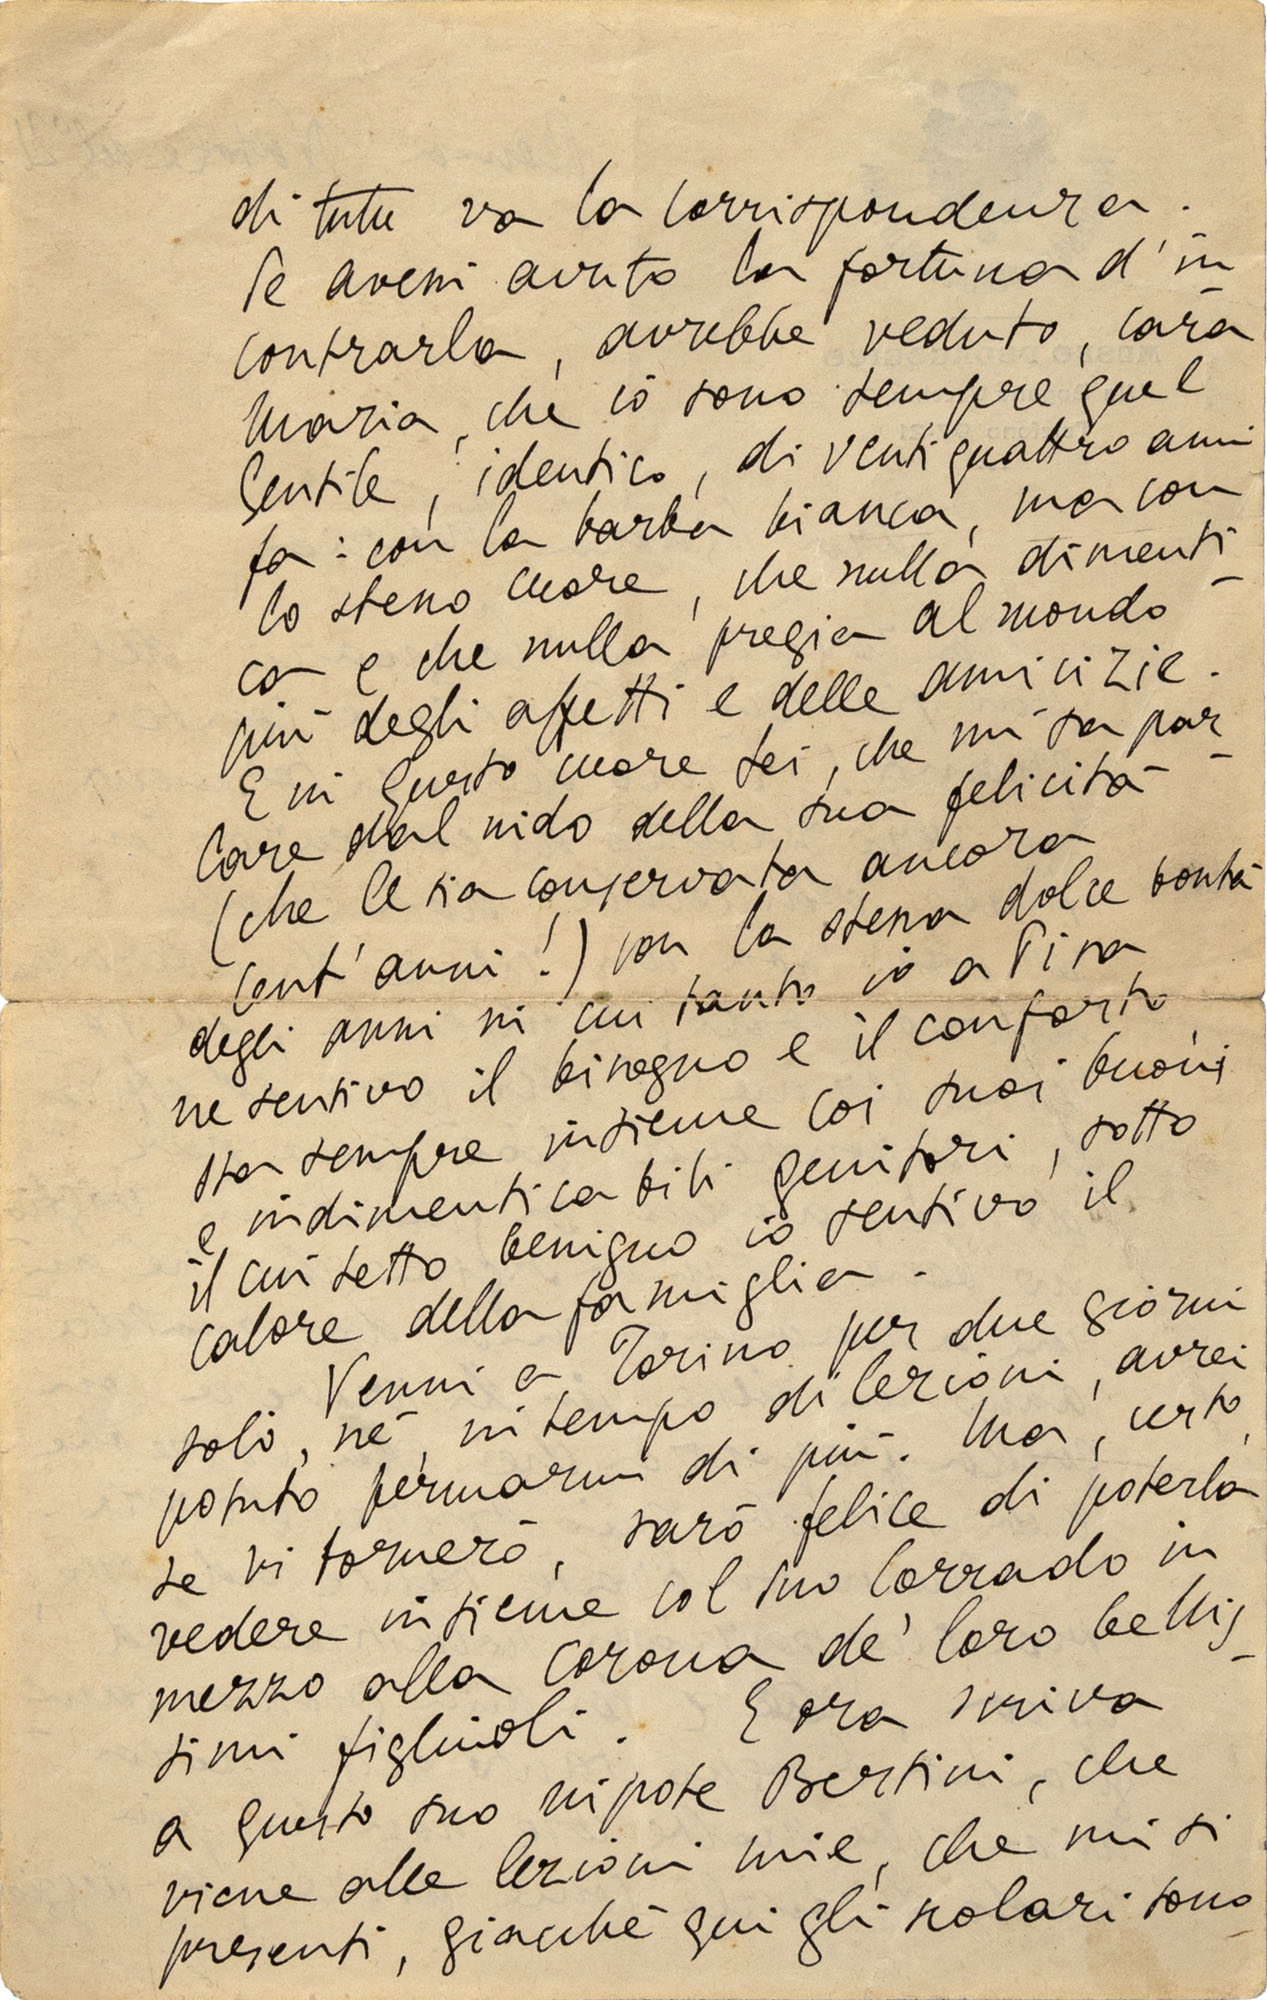 di tutti va la corrispondenza.
Se avessi avuto la fortuna d'in
contrarla, avrebbe veduto, cara
Maria, che io sono sempre quel
Gentile, identico, di ventiquattro anni
fa: con la barba bianca, ma con
lo stesso cuore, che nulla dimenti-
ca e che nulla pregia al mondo
più degli affetti e delle amicizie.
E in questo cuore Lei, che mi fa par-
lare dal nido della sua felicità
(che le sia conservata ancora
cent'anni!) con la stessa dolce bontà
degli anni in cui tanto io a Pisa
ne sentivo il bisogno e il conforto,
sta sempre insieme coi suoi buoni
e indimenticabili genitori, sotto
il cui tetto benigno io sentivo il
calore della famiglia.
Venni a Torino per due giorni
soli, né, in tempo di lezioni, avrei
potuto fermarmi di più. Ma, certo,
se vi tornerò, sarò felice di poterla
vedere insieme col suo Corrado in
mezzo alla corona de' loro bellis-
simi figliuoli. E ora scriva
a questo suo nipote Bertini, che
viene alle lezioni mie, che mi si
presenti, giacché qui gli scolari sono